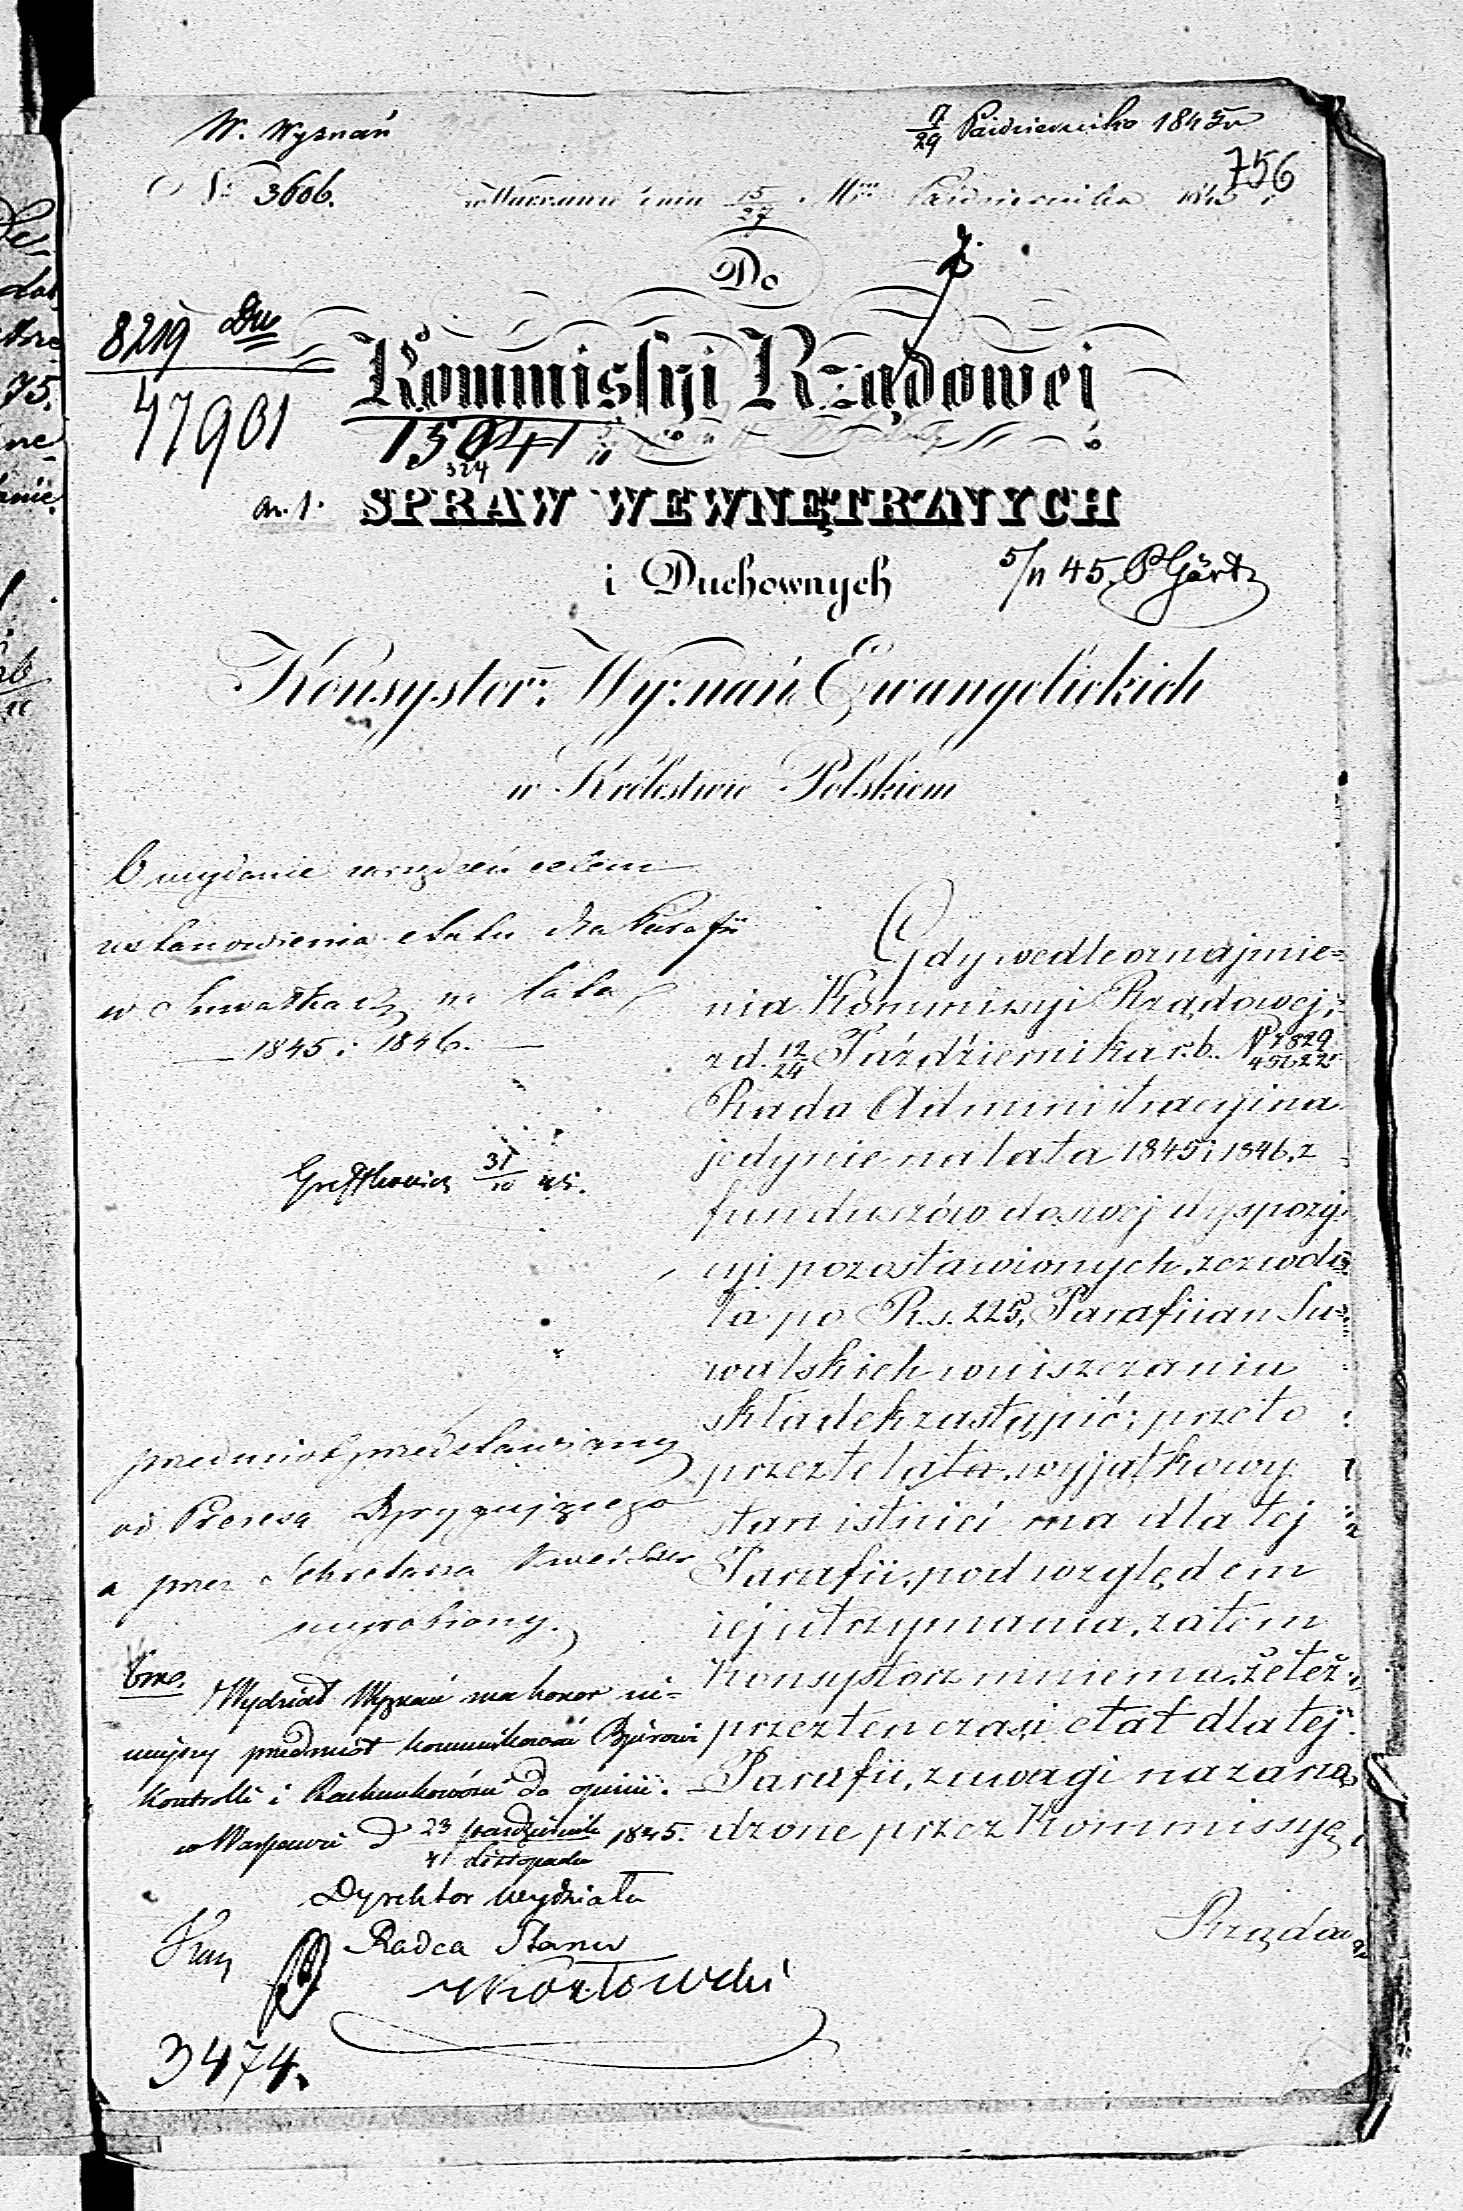 W. Wyznań
17/29 Października 1845 r
756
No 3606.
w Warszawie dnia 15/27 Mca Października 1845 r.
Do
8219
47901
Kommissyi Rządowej
15041
324
an. 1.
SPRAW WEWNĘTRZNYCH
i Duchownych
5/11 45
Konsystorz Wyznań Ewangelickich
w Królestwie Polskiem
O wydanie urządzeń celem
ustanowienia etatu dla Parafii
w Suwałkach na lata
1845 i 1846.
31/10 45.
Gdy wedle oznajmie=
nia Kommissyi Rządowej,
z d. 12/24 Października r. b. N 7829/45622
Rada Administracyjna
jedynie na lata 1845 i 1846. z
funduszów do swej dyspozy=
cyi pozostawionych, zezwoli=
ła po R.s. 225, Parafian Su=
walskich w uiszczaniu
składek zastąpić; przeto
przez te lata, wyjątkowy
stan istnieć ma dla tej
Parafii, pod względem
jej utrzymania, zatem
Konsystorz mniema, że też
przez ten czas, i etat dla tej
Parafii, z uwagi na zarzą=
dzone przez Kommissyę
Rządo=
przedmiot przedstawiony
od Prezesa Dyrygującego
a przez Sekretarza
wyrobiony.
Wydział Wyznań ma honor ni=
niejszy przedmiot kommunikować Biórowi
Kontrolli i Rachunkowości do opinii.
w Warszawie d 23 Października/4 Listopada 1845.
Dyrektor Wydziału
Radca Stanu
Kozłowski
3474.